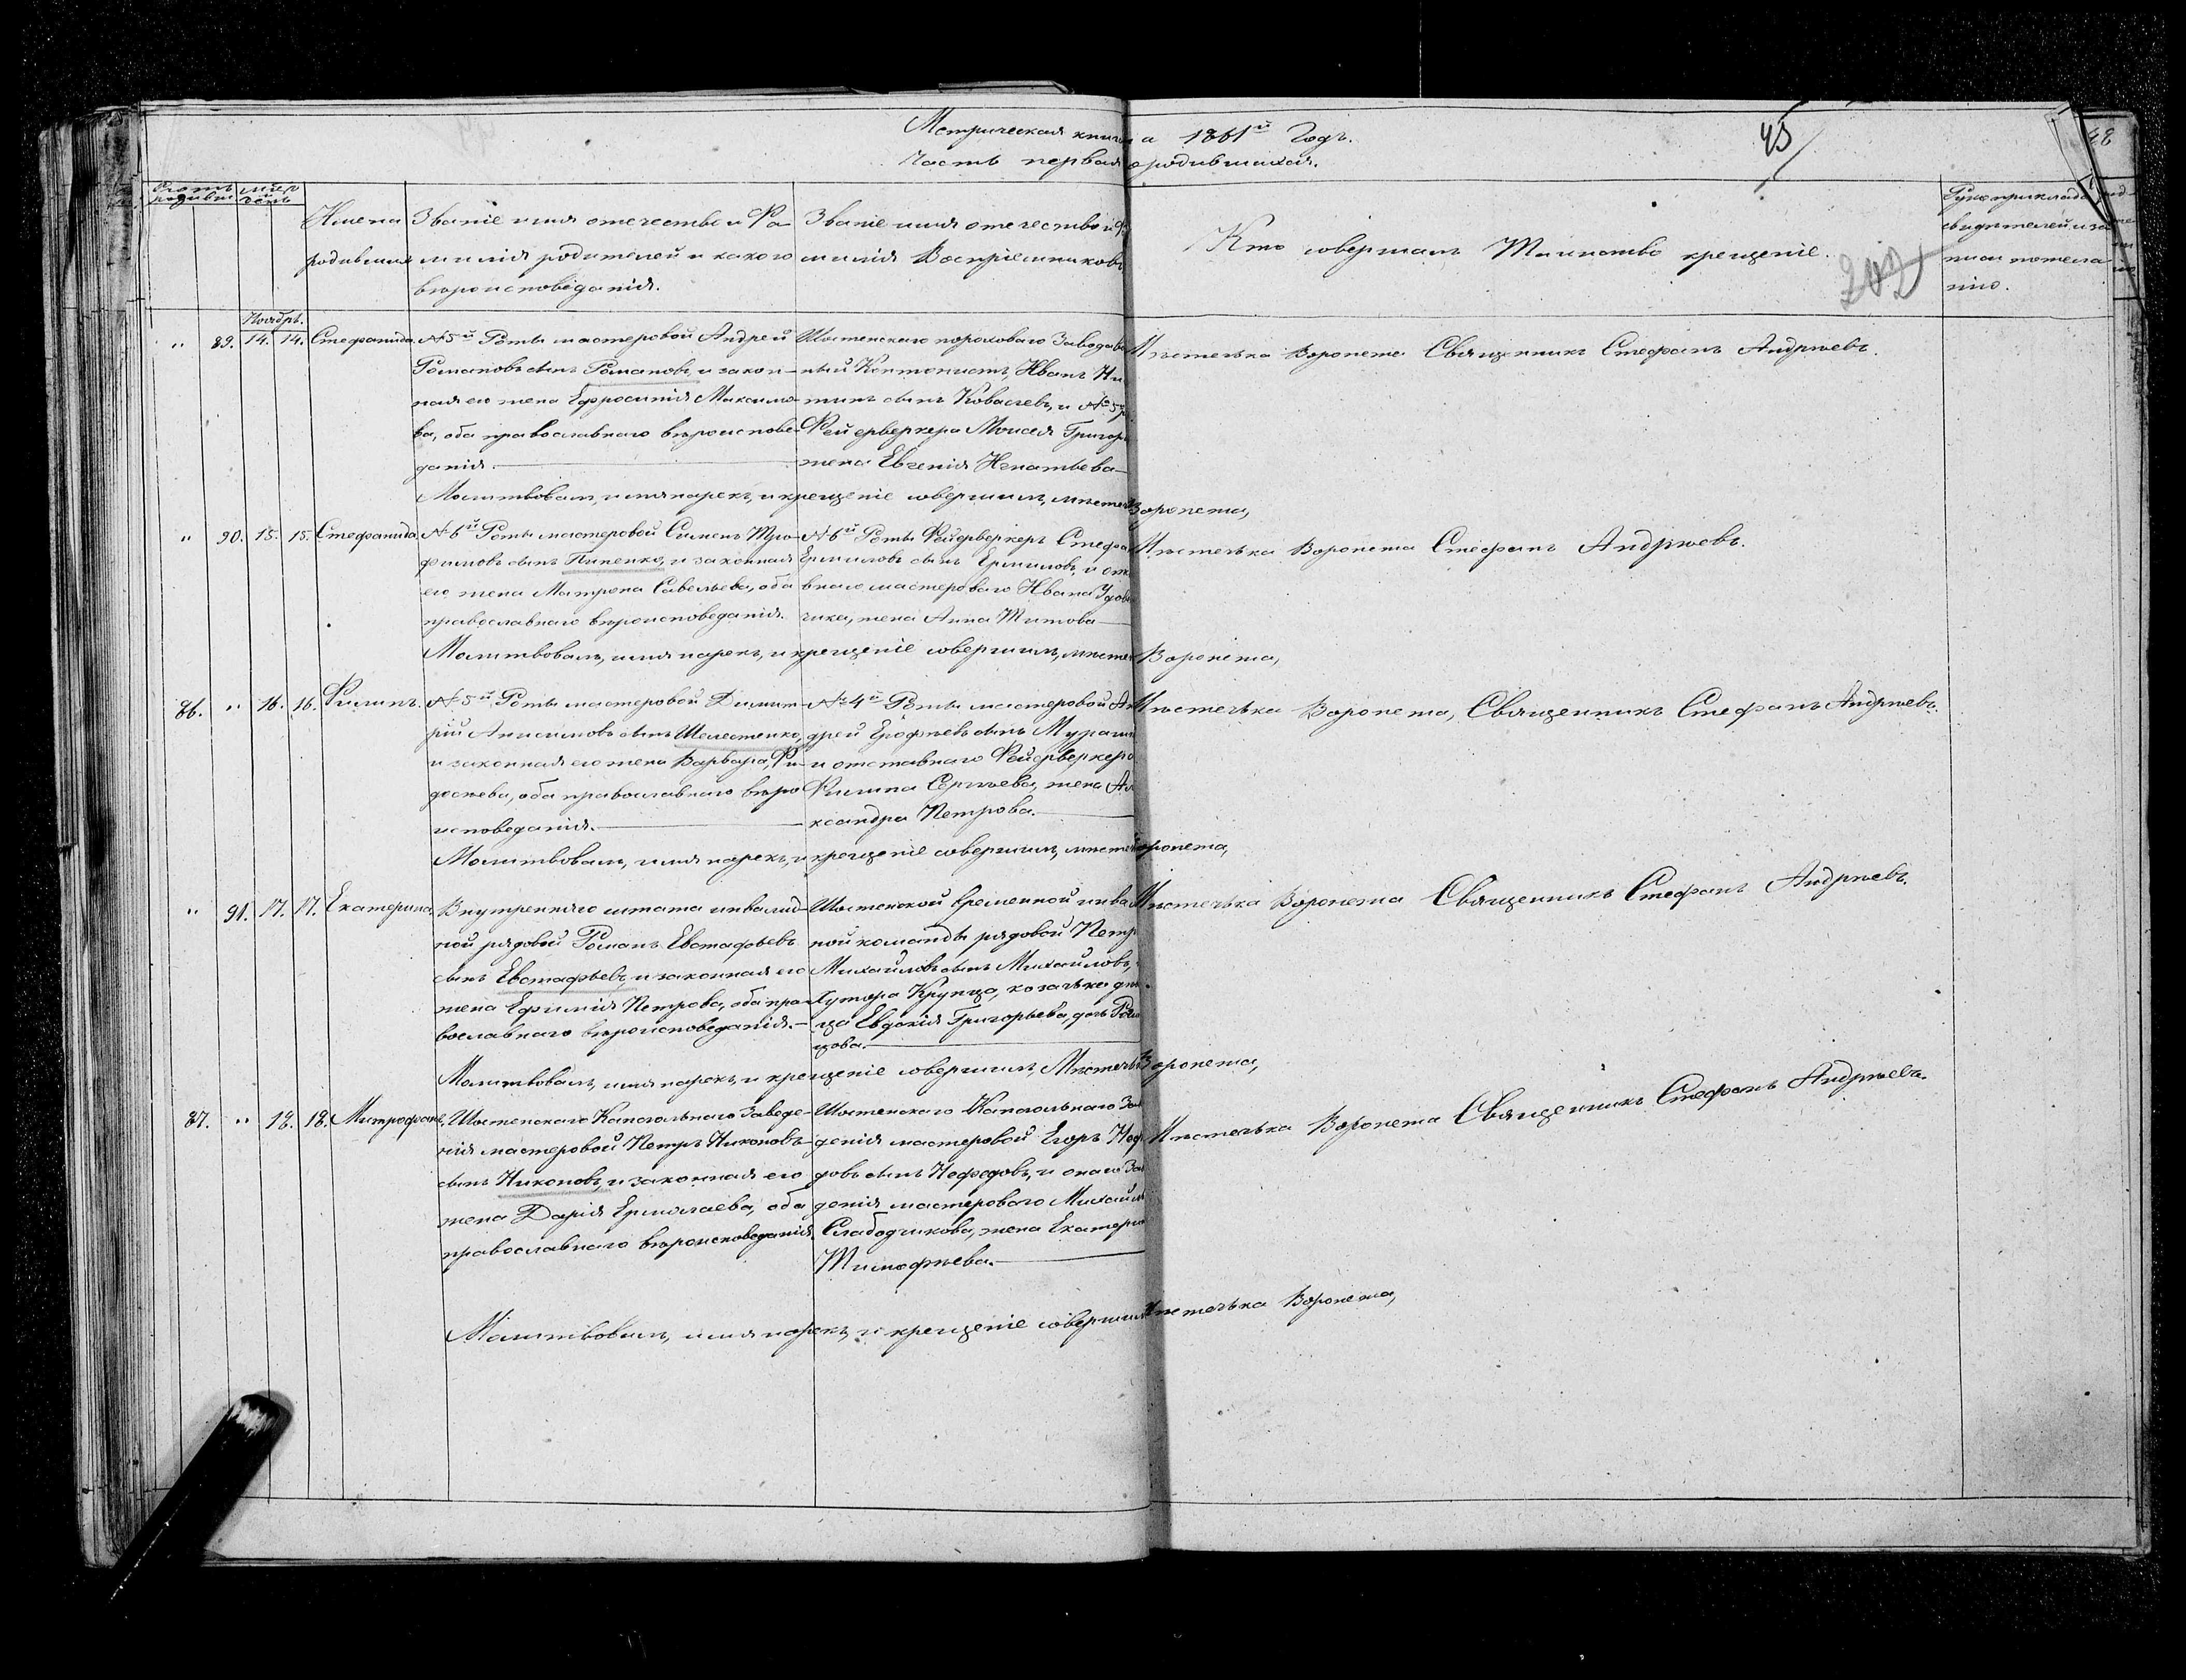 Метрическая книга 1861й Годъ.
Часть первая о родившихся.
45
Счетъ родивш
Имена родившихся
Званіе имя отечество и Фа-
милія родителей и какого
вѣроисповѣданія.
Званіе имя отечество и Ф
милія Воспріемниковъ
Кто совершалъ Таинство крещеніе.
202
Рукоприклад
свидѣтелей и за
писи пожела
нію.
48
Ноябрь.
" 89. 14. 14. Стефанида.
№ 5й Роты мастеровой Андрей
Романовъ сынъ Романовъ, и закон-
ная его жена Ефросинія Максимо-
ва, оба православнаго вѣроиспове-
данія.
Шостенскаго пороховаго Завода
ный Кантонистъ, Иванъ Ни
тинъ сынъ Ковалевъ, и № 5й
Фейерверкера Моисея Григорь
жена Евгенія Игнатьева
Мѣстечка Воронежа Священникъ Стефанъ Андрѣевъ.
Молитвовалъ, имя нарекъ, и крещеніе совершилъ, мѣстеч Воронежа,
" 90. 15. 15. Стефанида
№ 6й Роты мастеровой Симонъ Тро-
фимовъ сынъ Пипенко, и законная
его жена Матрона Савельева, оба
православнаго вѣроисповеданія.
№ 6й Роты Фейерверкеръ Стефа
Ермиловъ сынъ Ермиловъ, и отс
внаго мастероваго Ивана Удов
чика, жена Анна Титова
Мѣстечка Воронежа Стефанъ Андрѣевъ.
Молитвовалъ, имя нарекъ, и крещеніе совершилъ, мѣстеч Воронежа,
86. " 16. 16. Филипъ.
№ 5й Роты мастеровой Димит-
рій Анисимовъ сынъ Шелестенко,
и законная его жена Варвара Фи-
досѣева, оба православнаго вѣро
исповеданія.
№ 4й Роты мастеровой Ан
дрей Ерофѣевъ сынъ Мураш
и отставнаго Фейерверкера
Филипа Сергѣева, жена Ал
ксандра Петрова.
Мѣстечка Воронежа, Священникъ Стефанъ Андрѣевъ.
Молитвовалъ, имя нарекъ, и крещеніе совершилъ, мѣстеч оронежа,
" 91. 17. 17. Екатерина.
Внутренняго штата инвалид-
ной рядовой Романъ Евстафьевъ
сынъ Евстафьевъ, и законная его
жена Ефимія Петрова, оба пра-
вославнаго вѣроисповеданія.
Шостенской временной инва
ной команды рядовой Петр
Михайловъ сынъ Михайловъ,
Хутора Крупца, козачка дѣв
ца Евдокія Григорьева, дочь Ром
цова.
Мѣстечка Воронежа Священникъ Стефанъ Андрѣевъ.
Молитвовалъ, имя нарекъ, и крещеніе совершилъ, Мѣстечк Воронежа,
87. " 18. 18. Митрофанъ,
Шостенскаго Капсюльнаго Заведе-
нія мастеровой Петръ Никоновъ
сынъ Никоновъ, и законная его
жена Дарія Ермолаева, оба
православнаго вѣроисповеданія.
Шостенскаго Капсюльнаго Зав
денія мастеровой Егоръ Неф
довъ сынъ Нефедовъ, и онаго Зав
денія мастероваго Михаила
Слабодчикова, жена Екатерин
Тимофѣева.
Мѣстечка Воронежа Священникъ Стефанъ Андрѣевъ.
Молитвовалъ, имя нарекъ, и крещеніе совершил Мѣстечка Воронежа,